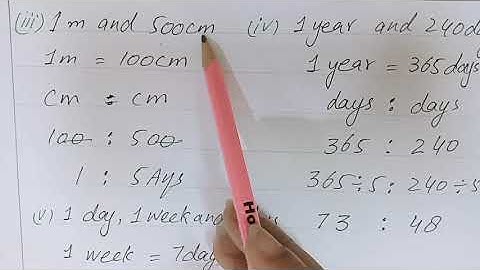 (iii) 1m and 500cm
1m = 100cm
cm : cm
100 : 500
1 : 5 Ans
(iv) 1 year and 240da
1 year = 365 days
days : days
365 : 240
365÷5 : 240÷5
73 : 48
(v) 1 day, 1 week and
1 week = 7day